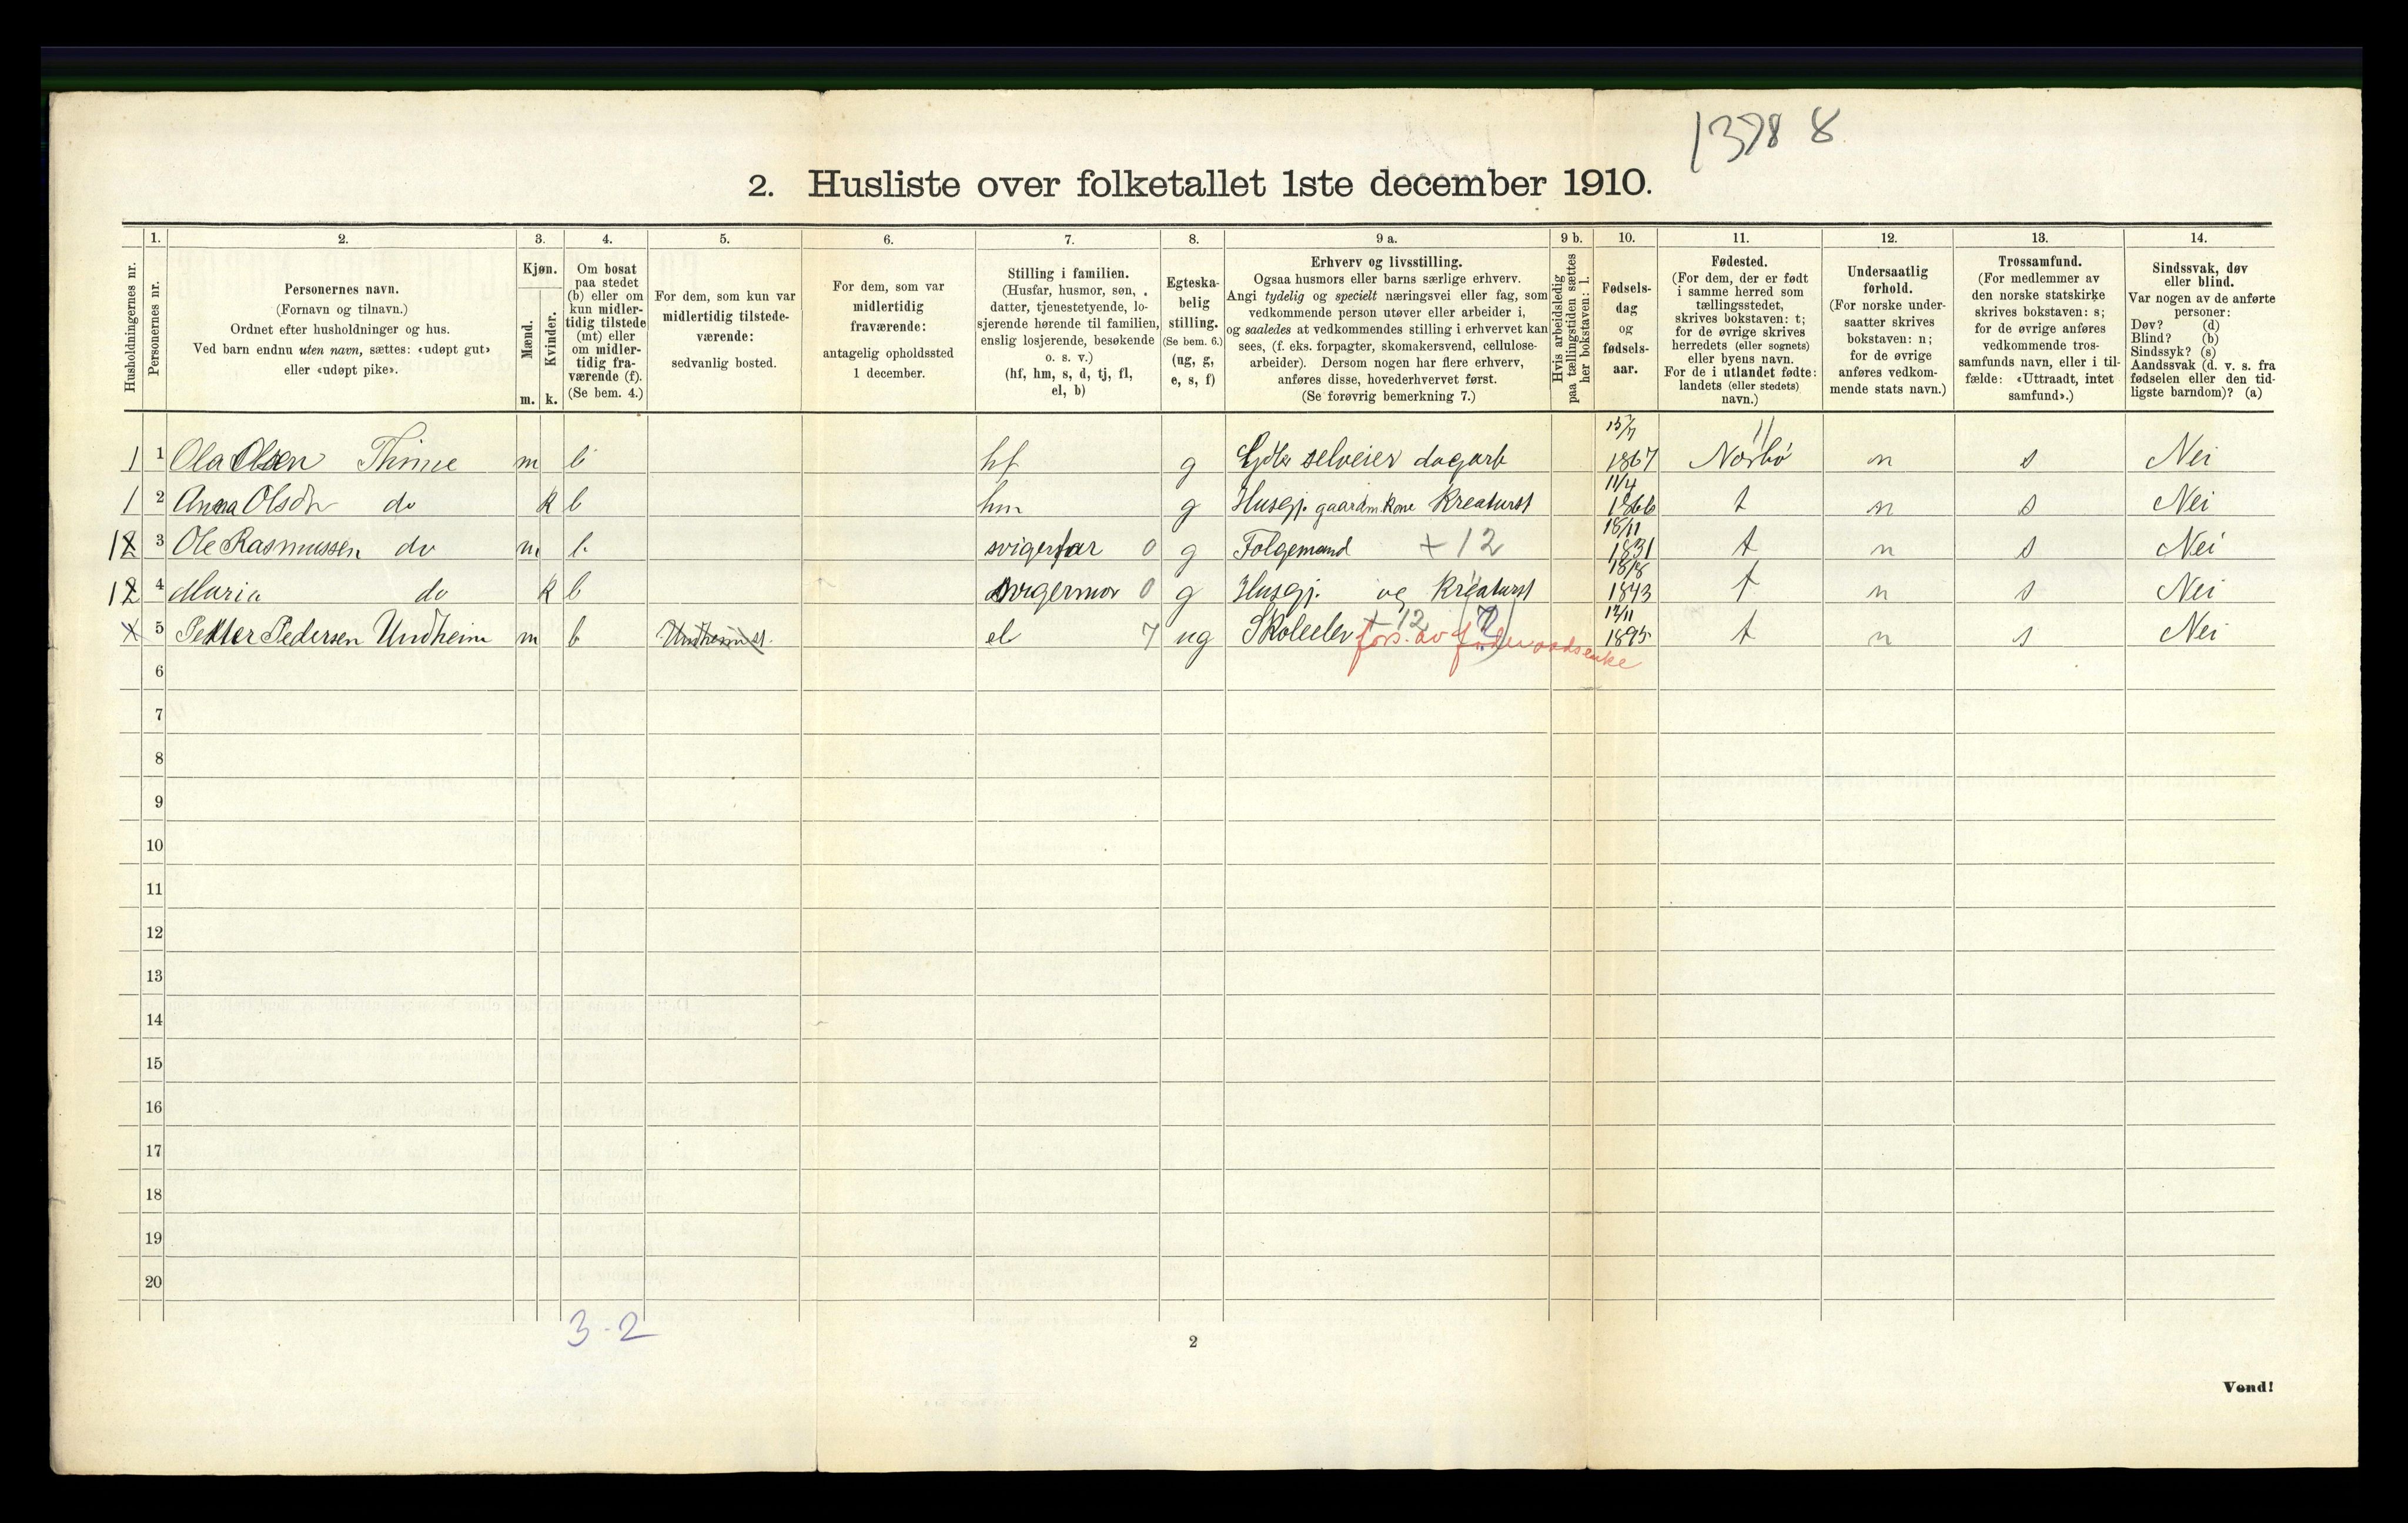 1378 8
2. Husliste over folketallet 1ste december 1910.
Husholdningernes nr.
1.
Personernes nr.
2.
Personernes navn.
(Fornavn og tilnavn.)
Ordnet efter husholdninger og hus.
Ved barn endnu uten navn, sættes: «udøpt gut»
eller «udøpt pike».
3.
Kjøn.
Mænd.
Kvinder.
m. k.
4.
Om bosat
paa stedet
(b) eller om
kun midler-
tidig tilstede
(mt) eller
om midler-
tidig fra-
værende (f).
(Se bem. 4.)
5.
For dem, som kun var
midlertidig tilstede-
værende:
sedvanlig bosted.
6.
For dem, som var
midlertidig
fraværende:
antagelig opholdssted
1 december.
7.
Stilling i familien.
(Husfar, husmor, søn,
datter, tjenestetyende, lo-
sjerende hørende til familien,
enslig losjerende, besøkende
o. s. v.)
(hf, hm, s, d, tj, fl,
el, b)
8.
Egteska-
belig
stilling.
(Se bem. 6.)
(ug, g,
e, s, f)
9 a.
Erhverv og livsstilling.
Ogsaa husmors eller barns særlige erhverv.
Angi tydelig og specielt næringsvei eller fag, som
vedkommende person utøver eller arbeider i,
og saaledes at vedkommendes stilling i erhvervet kan
sees, (f. eks. forpagter, skomakersvend, cellulose-
arbeider). Dersom nogen har flere erhverv,
anføres disse, hovederhvervet først.
(Se forøvrig bemerkning 7.)
9 b.
Hvis arbeidsledig
paa tællingstiden sættes
her bokstaven: l.
10.
Fødsels-
dag
og
fødsels-
aar.
11.
Fødested.
(For dem, der er født
i samme herred som
tællingsstedet,
skrives bokstaven: t;
for de øvrige skrives
herredets (eller sognets)
eller byens navn.
For de i utlandet fødte:
landets (eller stedets)
navn.)
12.
Undersaatlig
forhold.
(For norske under-
saatter skrives
bokstaven: n;
for de øvrige
anføres vedkom-
mende stats navn.)
13.
Trossamfund.
(For medlemmer av
den norske statskirke
skrives bokstaven: s;
for de øvrige anføres
vedkommende tros-
samfunds navn, eller i til-
fælde: «Uttraadt, intet
samfund».)
14.
Sindssvak, døv
eller blind.
Var nogen av de anførte
personer:
Døv? (d)
Blind? (b)
Sindssyk? (s)
Aandssvak (d. v. s. fra
fødselen eller den tid-
ligste barndom)? (a)
1 1 Ola Olsen Thime m b hf g selveier dagarb 1867 Nærbø n s Nei
1 2 Anna Olsdr do k b hm g Husgj. gaardm. kone Kreaturst 11/4 1866 t n s Nei
12 3 Ole Rasmussen do m b svigerfar 0 g Folgemand + 12 18/11 1831 t n s Nei
12 4 Maria do k b svigermor 0 g Husgj. og Kreaturst 18/8 1843 t n s Nei
x 5 Petter Pedersen Undheim m b Undheim st. el 7 ug Skoleelev + 12 12/11 1895 t n s Nei
fors. av
6
7
8
9
10
11
12
13
14
15
16
17
18
19
20
3 - 2
2
Vend!